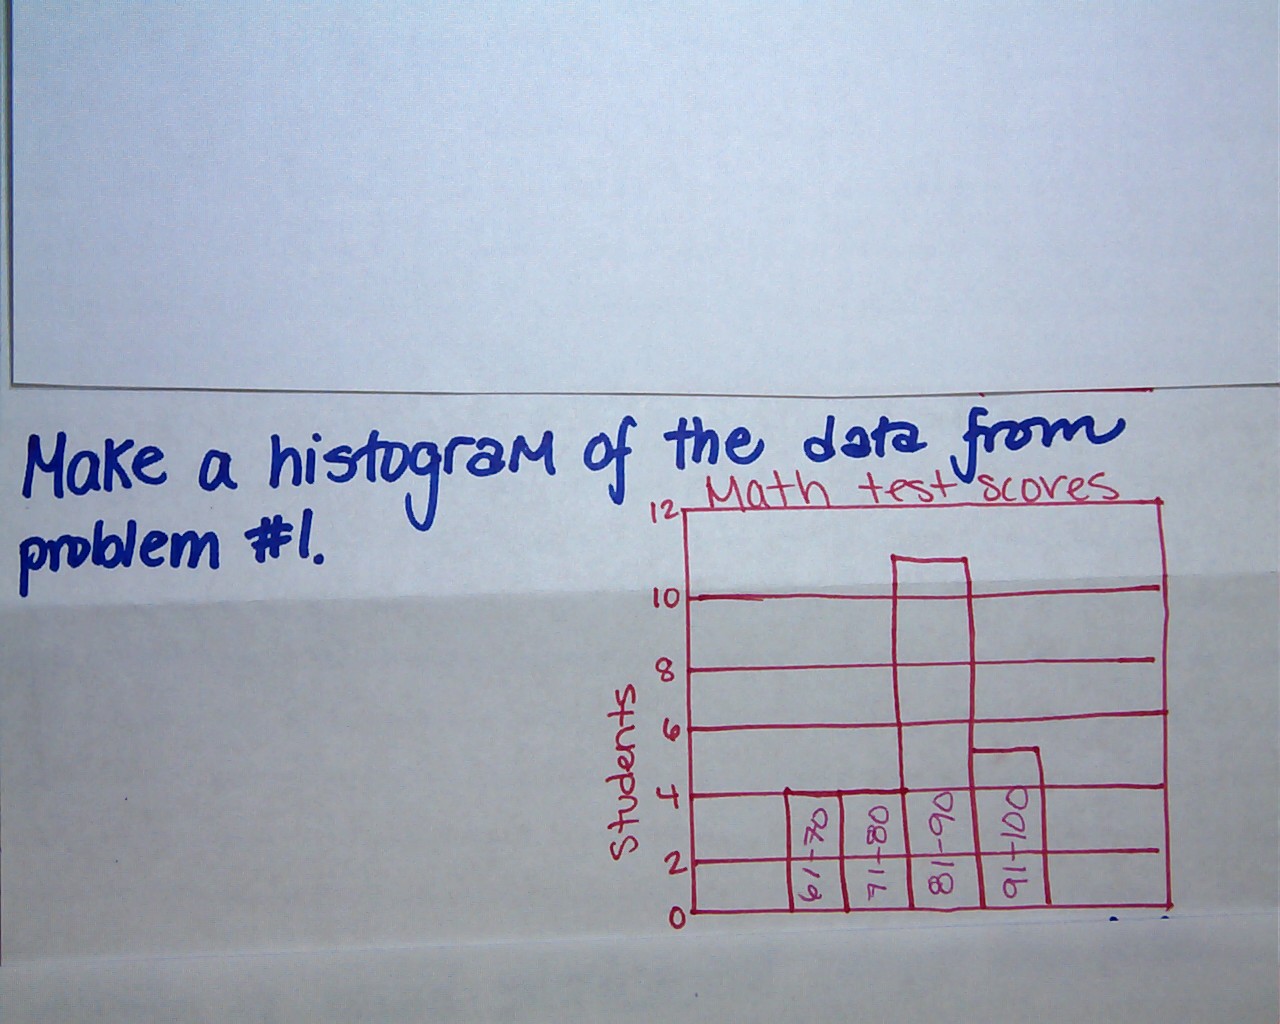 Make a histogram of the data from
problem #1.
Math test scores
12
10
8
6
4
2
0
Students
61-70
71-80
81-90
91-100